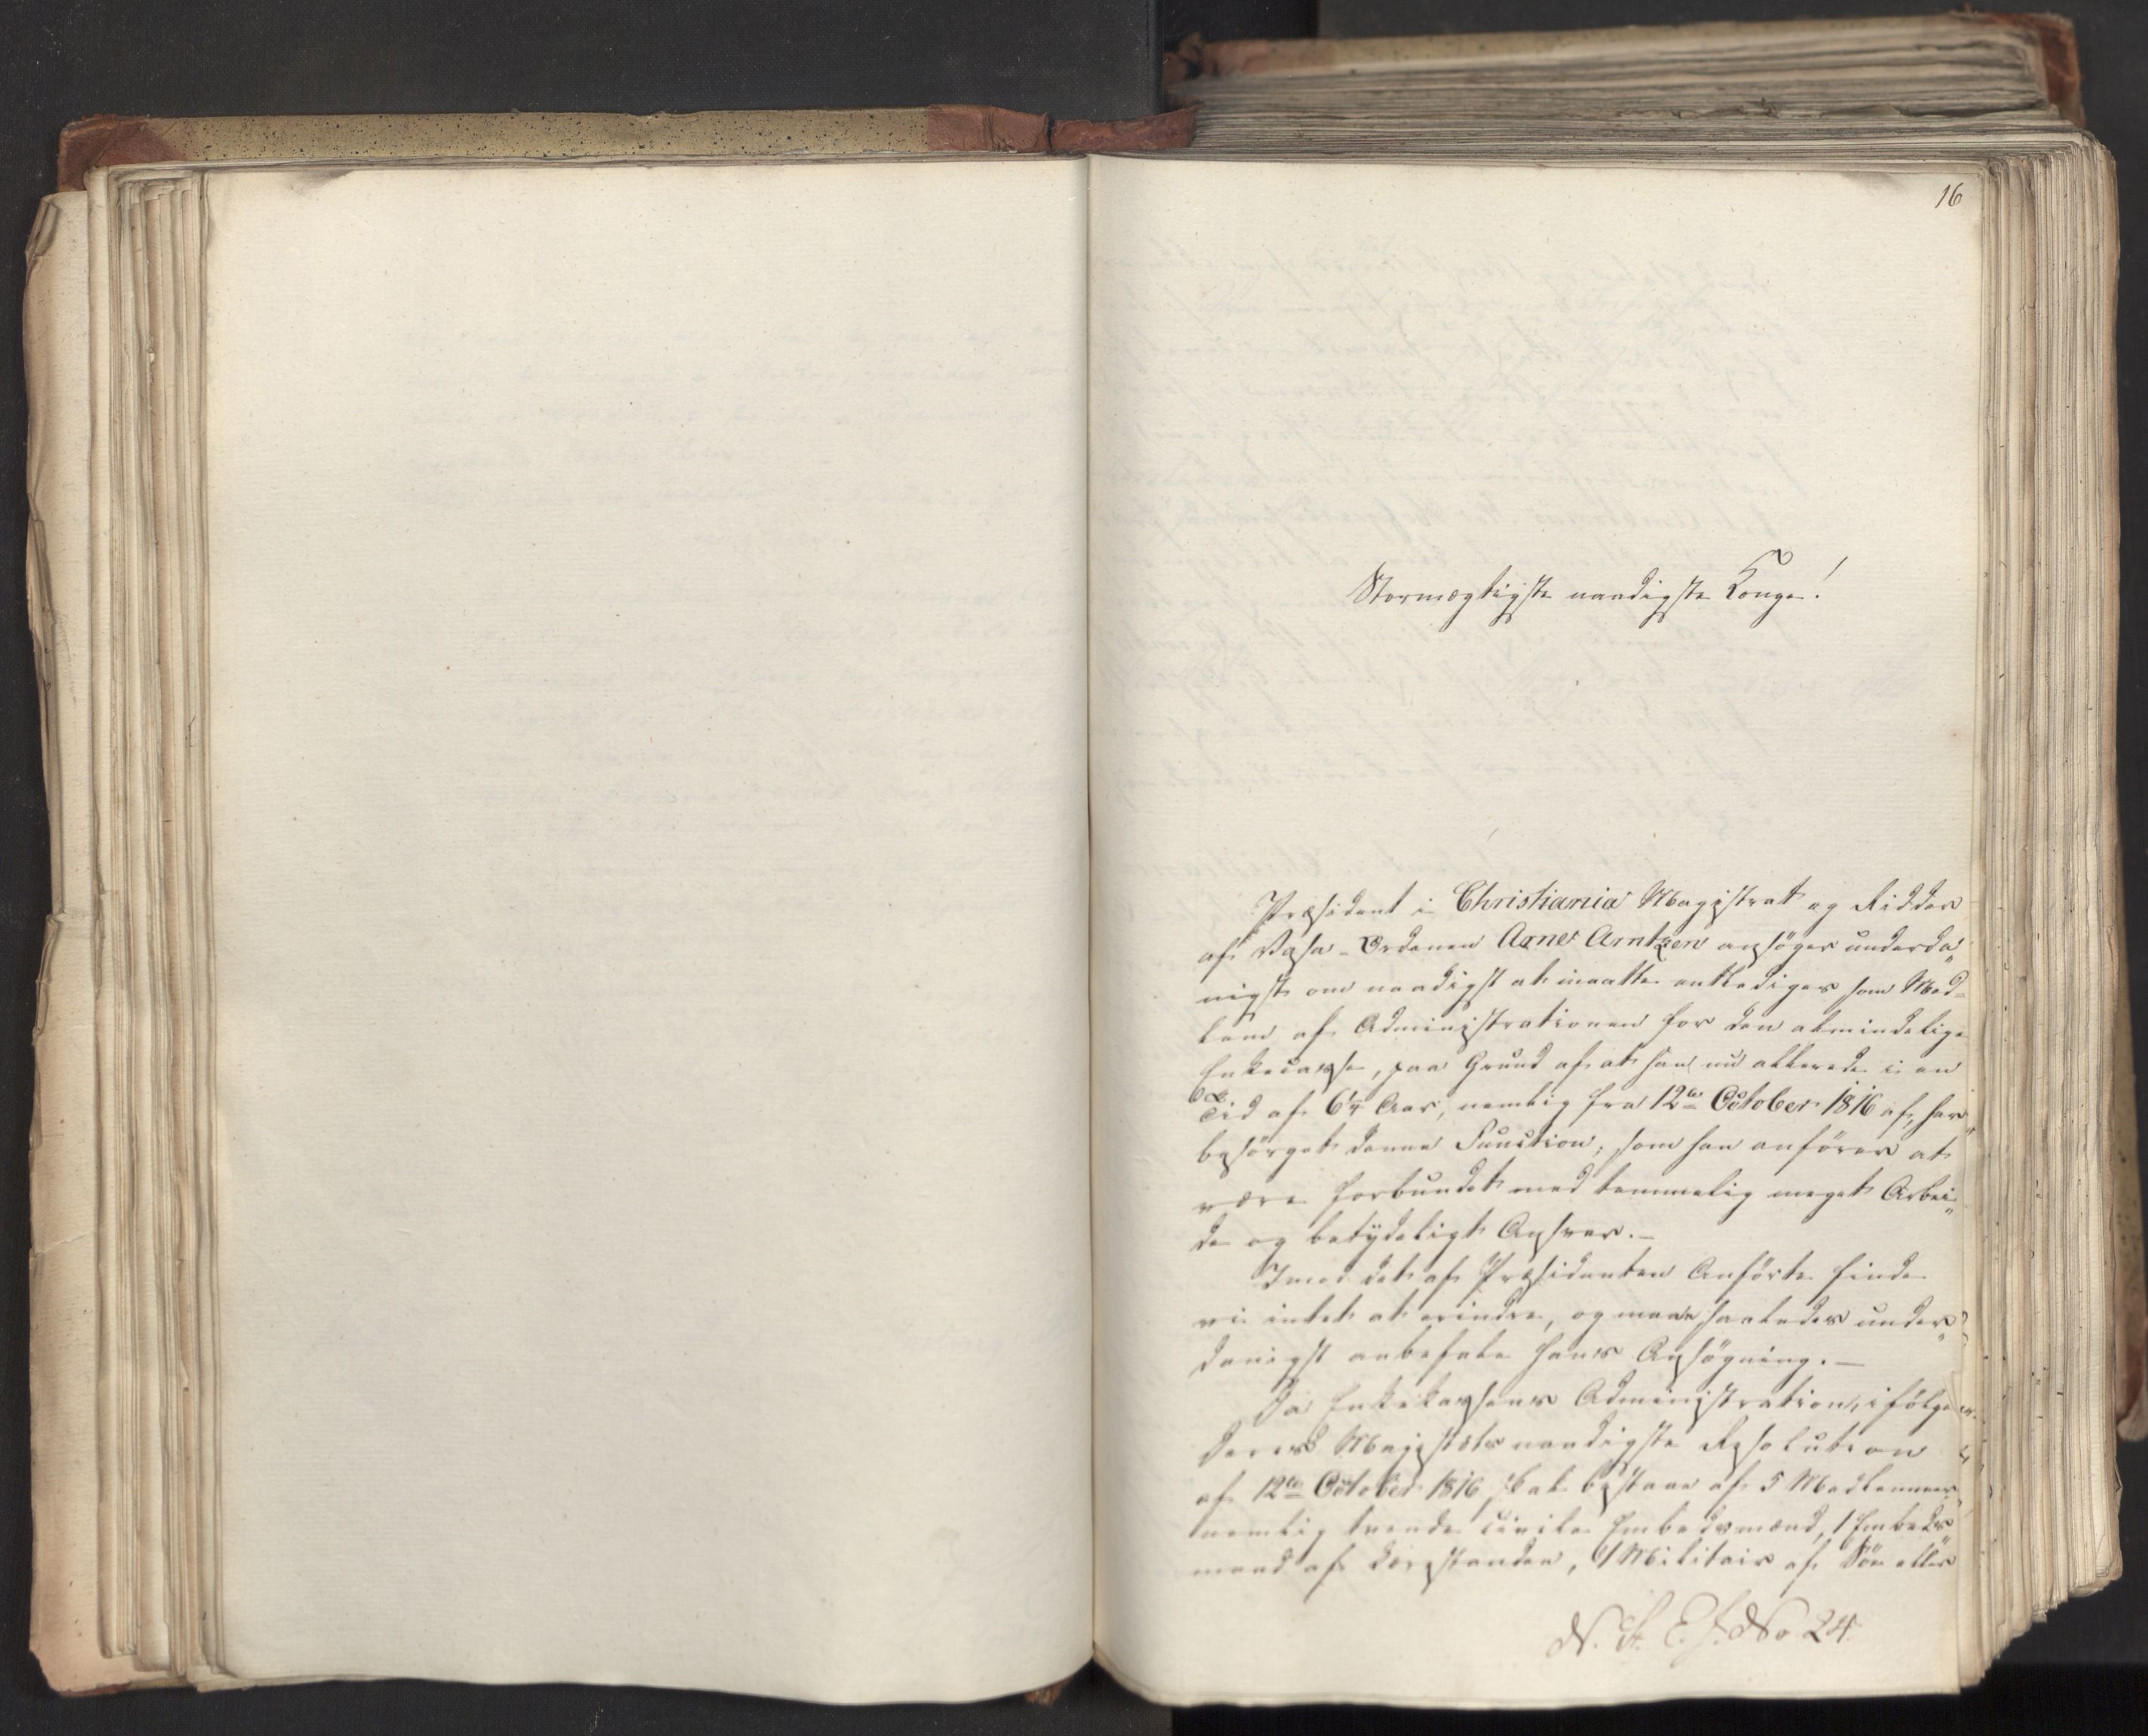 16
Stormægtigste naadigste Konge!
Præsident i Christiania Magistrat og Ridder
af Vasa-Ordenen Arne Arntzen ansøger underda„
nigst om naadigst at maatte entlediges som Med-
lem af Administrationen for den almindelige
Enkecasse, paa Grund af at han nu allerede i en
Tid af 6¼ Aar, nemlig fra 12te October 1816 af, har
besørget denne Function, som han anfører at
være forbundet med temmelig meget Arbei„
de og betydeligt Ansvar.—
Imod det af Præsidenten Anførte finde
vi intet at erindre, og maae saaledes under„
danigst anbefale hans Ansøgning.—
Da Enkekassens Administration, ifølge
Deres Majestæts naadigste Resolution
af 12te October 1816 skal bestaae af 5 Medlemmer,
nemlig tvende civile Embedsmænd, 1 Embeds„
mand af Lærstanden, 1 Militair af Søe eller
No 24.